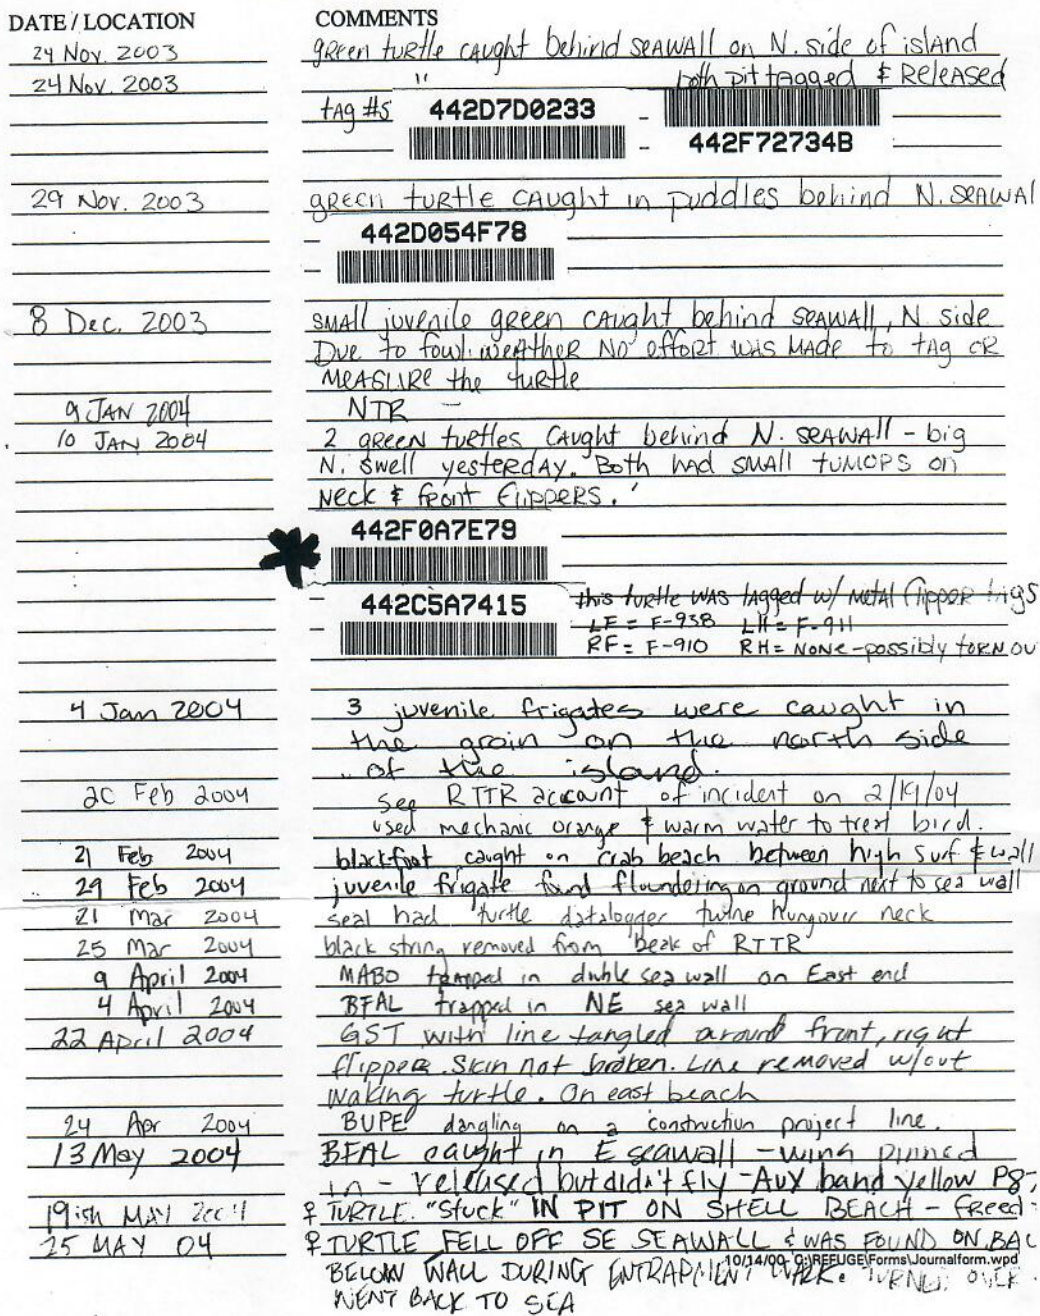 DATE / LOCATION COMMENTS
24 Nov. 2003 green turtle caught behind seawall on N. side of island
24 Nov. 2003 " both pit tagged & Released
tag #s 442D7D0233 - 442F72734B
29 Nov. 2003 green turtle caught in puddles behind N. seawal
442D054F78
8 Dec. 2003 small juvenile green caught behind seawall, N. side
Due to fowl weather NO effort was made to tag or
measure the turtle
9 JAN 2004 NTR -
10 JAN 2004 2 green turtles caught behind N. seawall - big
N. swell yesterday. Both had small tumors on
neck & front flippers.
442F0A7E79
442C5A7415 this turtle was tagged w/ metal flipper tags
LF = F-938 LH = F-911
RF = F-910 RH = NONE - possibly torn ou
4 Jan 2004 3 juvenile frigates were caught in
the groin on the north side
of the island.
20 Feb 2004 see RTTR account of incident on 2/19/04
used mechanic orange & warm water to treat bird.
21 Feb 2004 blackfoot caught on crab beach between high surf & wall
29 Feb 2004 juvenile frigate found floundering on ground next to sea wall
21 Mar 2004 seal had turtle datalogger twine hung over neck
25 Mar 2004 black string removed from beak of RTTR
9 April 2004 MABO trapped in duble sea wall on East end
4 April 2004 BFAL trapped in NE sea wall
22 April 2004 GST with line tangled around front, right
flipper. Skin not broken. Line removed w/out
waking turtle. On east beach
24 Apr 2004 BUPE dangling on a construction project line.
13 May 2004 BFAL caught in E seawall - wing pinned
in - released but didn't fly - Aux band yellow P8-
19ish MAY 2004 ♀ TURTLE "Stuck" IN PIT ON SHELL BEACH - freed
25 MAY 04 ♀ TURTLE FELL OFF SE SEAWALL & WAS FOUND ON BAC
10/14/00 C:\REFUGE\Forms\Journalform.wpd
BELOW WALL DURING ENTRAPMENT WALK. TURNED OVER.
WENT BACK TO SEA